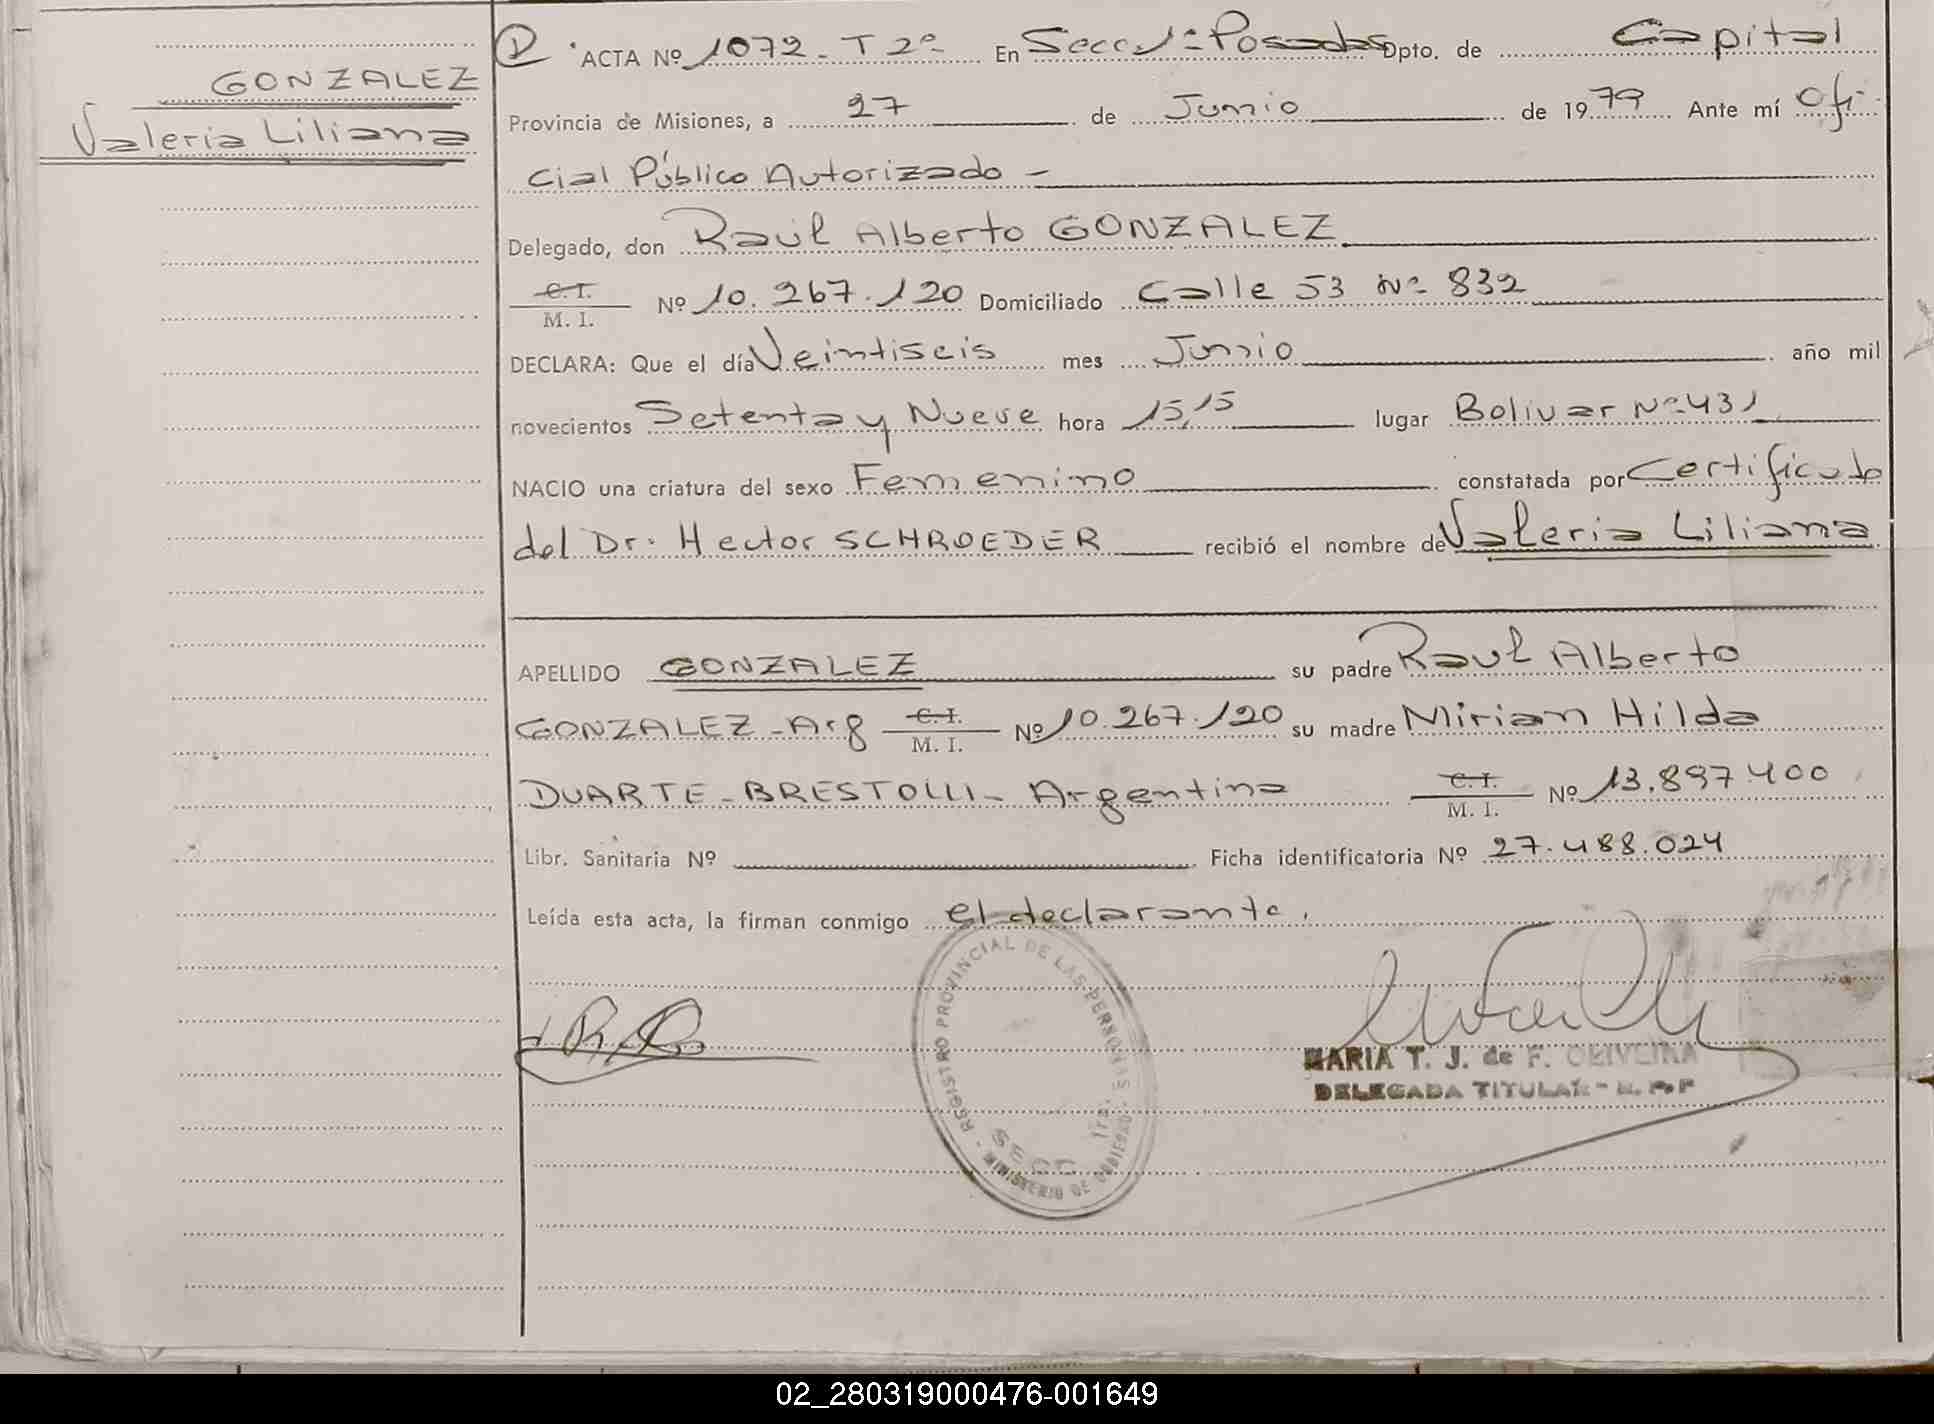 GONZALEZ
Valeria Liliana
D ACTA Nº 1072 - T 2º En Secc. 1ª Posadas Dpto. de Capital
Provincia de Misiones, a 27 de Junio de 1979 Ante mí Ofi
cial Público Autorizado -
Delegado, don Raúl Alberto GONZALEZ
C. I.
M. I. Nº 10.267.120 Domiciliado Calle 53 Nº 832
DECLARA: Que el día Veintiseis mes Junio año mil
novecientos Setenta y Nueve hora 15,15 lugar Bolivar Nº 431
NACIO una criatura del sexo Femenino constatada por Certificado
del Dr. Hector SCHROEDER recibió el nombre de Valeria Liliana
APELLIDO GONZALEZ su padre Raul Alberto
GONZALEZ - Arg C. I. M. I. Nº 10.267.120 su madre Mirian Hilda
DUARTE - BRESTOLLI - Argentina C. I. M. I. Nº 13.897.400
Libr. Sanitaria Nº Ficha identificatoria Nº 27.488.024
Leída esta acta, la firman conmigo el declarante.
REGISTRO PROVINCIAL DE LAS PERSONAS - MINISTERIO DE GOBIERNO -
SECC 1ra.
MARIA T. J. de F. OLIVEIRA
DELEGADA TITULAR - R. P. P
02_280319000476-001649